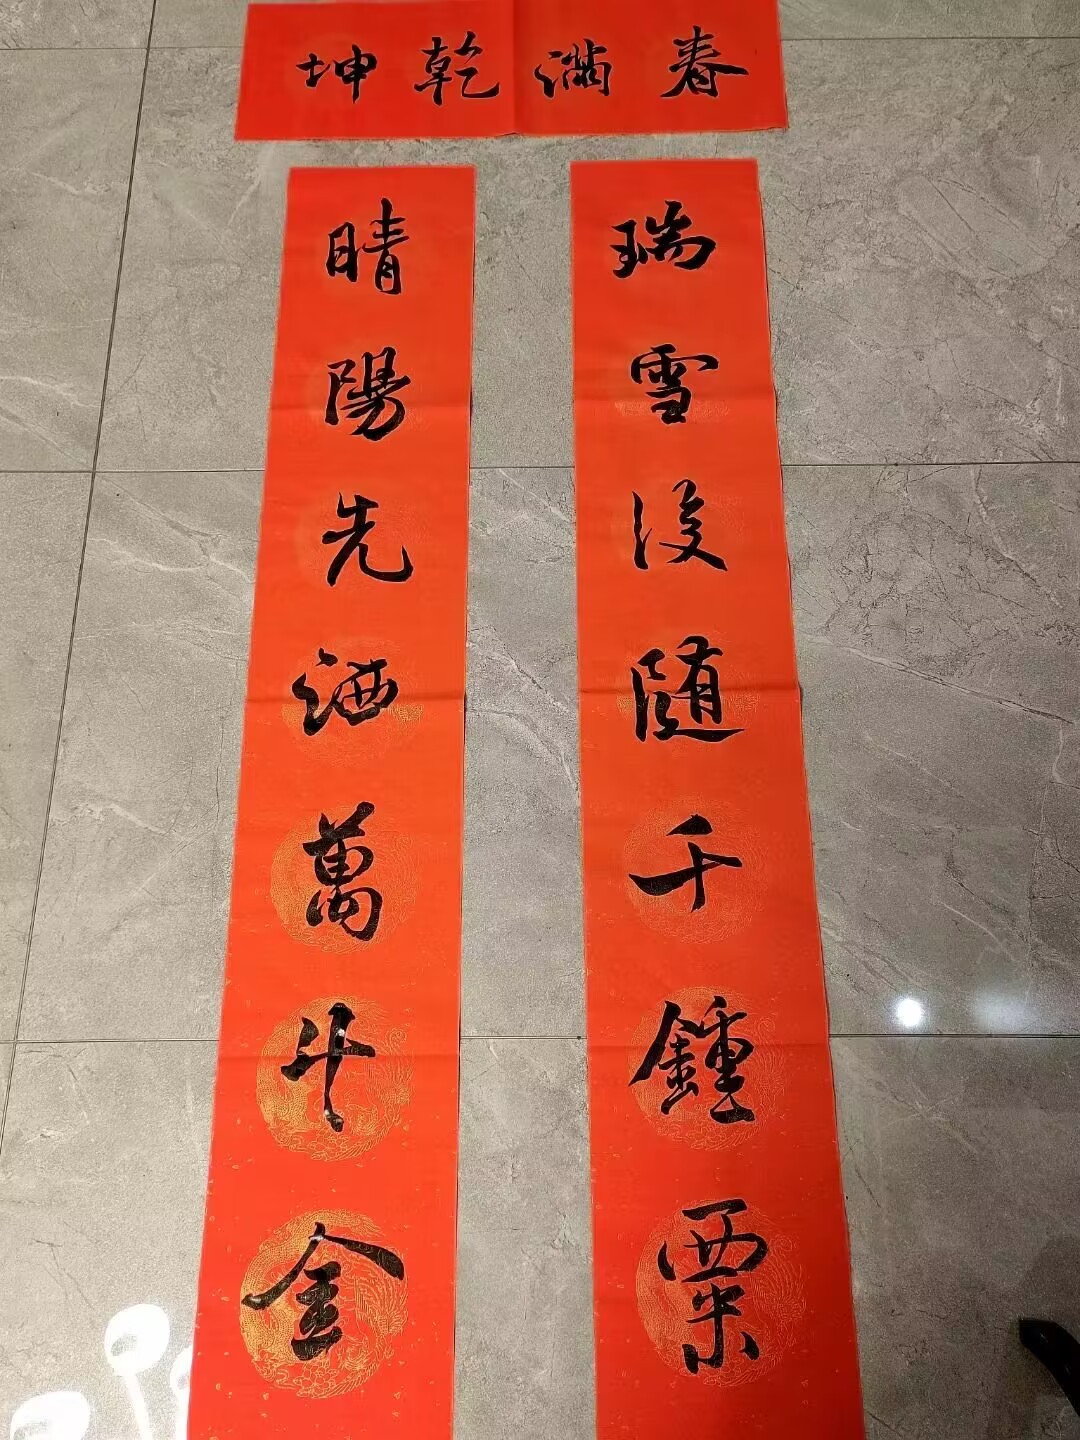 春滿乾坤
瑞雪後随千鍾粟
晴陽先洒萬斗金